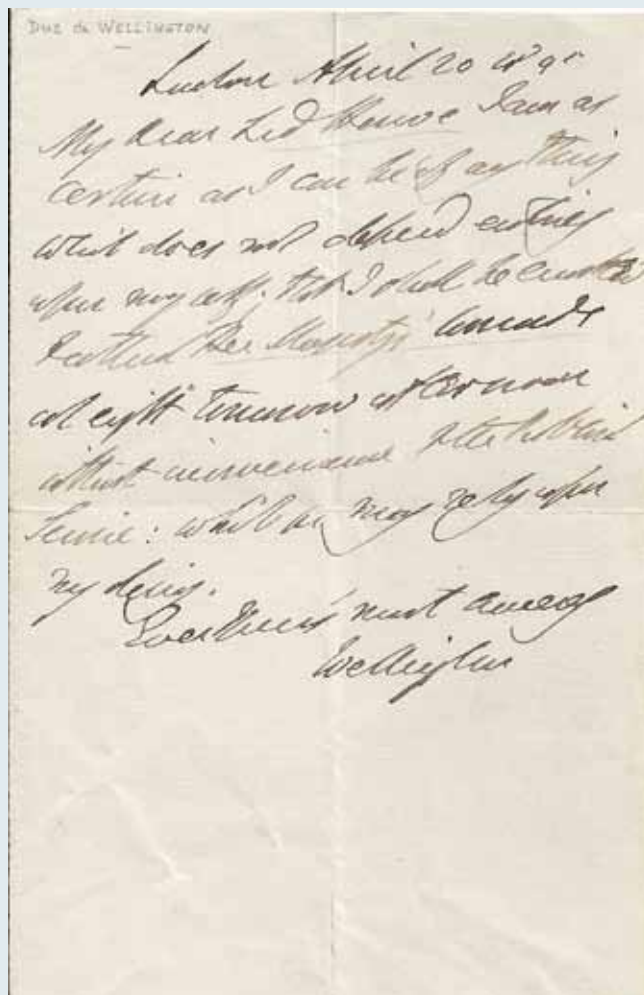 Duc de WELLINGTON
London April 20
My Dear Lord Howe I am as
certain as I can be of any thing
which does not depend entirely
upon myself; that I shall be enabled
to attend Her Majesty's Commands
at eight tomorrow afternoon
without inconvenience to the Publick
Service: which you may rely upon
my doing.
Ever Yours most
Wellington